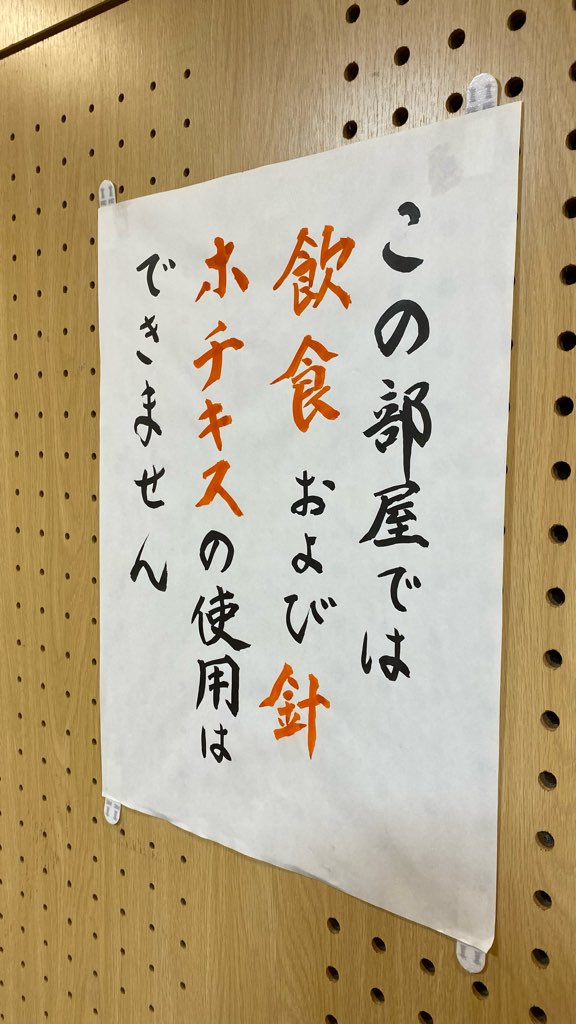 この部屋では
飲食および針
ホチキスの使用は
できません